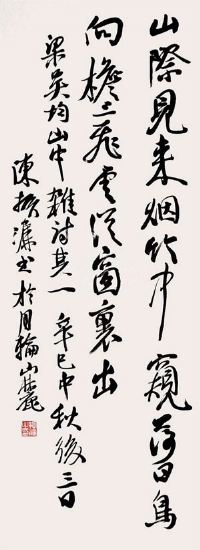 山際見来烟竹中窺落日鳥
向檐上飛雲從窗裏出
梁吳均山中雜詩其一 辛巳中秋後三日
陳振濂書於月輪山麓